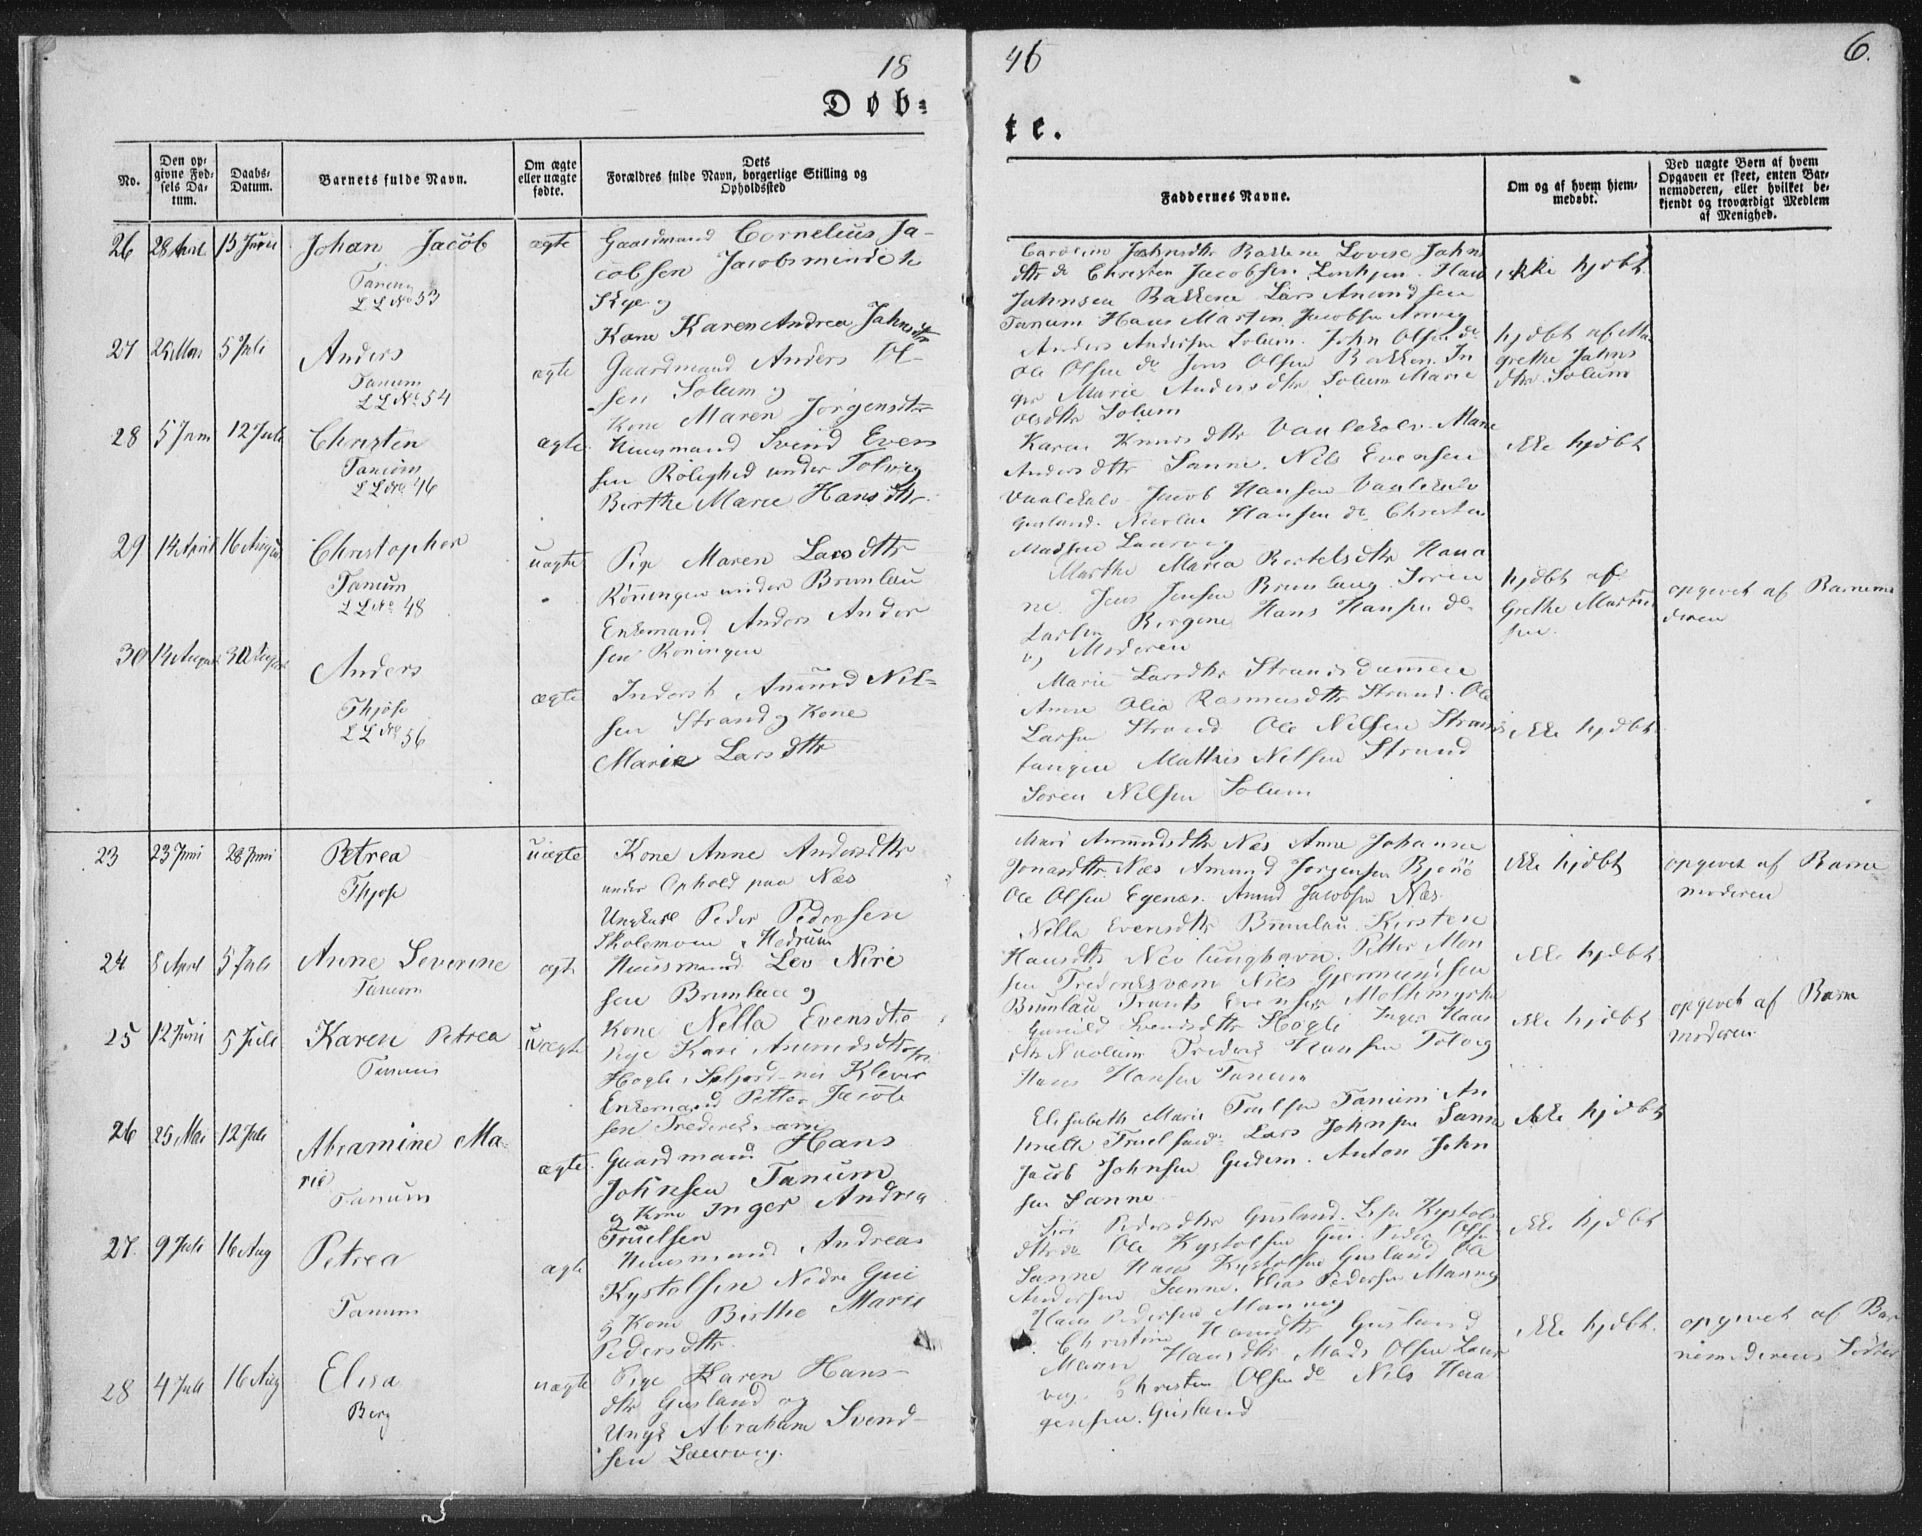 18
46
6.
Døb-
te.
No.
Den op-
givne Fød-
sels Da-
tum.
Daabs-
Datum.
Barnets fulde Navn.
Om ægte
eller uægte
fødte.
Dets
Forældres fulde Navn, borgerlige Stilling og
Opholdssted
Faddernes Navne.
Om og af hvem hjem-
medøbt.
Ved uægte Børn af hvem
Opgaven er skeet, enten Bar-
nemoderen, eller hvilket be-
kjendt og troværdigt Medlem
af Menighed.
26
Johan Jacob
L L No 53
ægte
Gaardmand Cornelius Ja-
cobsen Jacobsminde
Kone Karen Andrea Jahnsdtr
Christen Jacobsen
Jahnsen Bakkene Lars Amundsen
Tanum Hans Martin Jacobsen
ikke hjdbt
27
25 Mai
5 Juli
Anders
Tanum
L L No 54
ægte
Gaardmand Anders Ol-
sen Solum og
Kone Maren Jørgensdtr
Anders Andersen Solum. John Olsen do
Ole Olsen do Jens Olsen Bakken. In
ger Marie Andersdtr Solum Marie
Olsdtr Solum
hjdbt af Ma
grethe Jahns
dtr Solum
28
5 Juni
12 Juli
Christen
Tanum
L L No 46
ægte
Huusmand Svend Even
sen Rolighed under Tolvig
Berthe Marie Hansdtr.
Karen Knudsdtr Vaalekelv. Maren
Andersdtr Sanne. Nils Evensen
Vaalekelv. Jacob Hansen Vaalekelv
Gusland. Nicolai Hansen do Christen
Madsen Laurvig
ikke hjdbt
29
14 April
16 August
Christopher
Tanum
L L No 48
uægte
Pige Maren Larsdtr
Rönningen under Brunlau
Enkemand Anders Ander
sen Roningen
Marthe Maria Bertelsdtr Hava
ne Jens Jensen Brunlaug. Sören
Larsen Bergene Hans Hansen do
og Moderen
hjdbt af
Grethe Martin
sen.
opgivet af Barnemo
deren
30
14 August
30 August
Anders
Thjöse
L L No 56
ægte
Inderst Amund Nil-
sen Strand og Kone
Marie Larsdtr
Marie Larsdtr Strandsdammen
Anne Olia Rasmusdtr Strand. Ole
Larsen Strand Ole Nilsen Strand
tangen Mathis Nilsen Strand
Sören Nilsen Solum
ikke hjdbt
23
23 Juni
28 Juni
Petrea
Thjöse
uægte
Kone Anne Andersdtr
under Ophold paa Næs
Ungkarl Peder Pedersen
Skolemoen i Hedrum
Mari Amundsdtr Næs Anne Johanne
Jonasdtr Næs Amund Jørgensen Bjönö
Ole Olsen Egenæs. Amund Jacobsen Næs
ikke hjdbt
opgivet af Barne
moderen
24
8 April
5 Juli
Anne Severine
Tanum
ægte
Huusmand Lev Niri
sen Brunlau og
Kone Nella Evensdtr
Nella Evensdtr Brunlau. Kirsten
Hansdtr Nevlunghavn. Petter Mon
sen Frederiksværn Nils Gjermundsen
Brunlau Trants Evensen Molthmyren
ikke hjdbt
25
12 Juni
5 Juli
Karen Petrea
Tanum
uægte
Pige Kari Amundsdtr
Hogli i Seljord
Enkemand Petter Jacob
sen Frederiksværn
Gunild Svendsdtr Hogli Inger Hans
dtr Nuolum Frederik Hansen Tolvig
Hans Hansen Tanum
ikke hjdbt
opgivet af Barne
moderen
26
25 Mai
12 Juli
Abramine Ma-
rie
Tanum
ægte.
Gaardmand Hans
Johnsen Tanum
og Kone Inger Andrea
Truelsen
Elisabeth Marie Trulsen Tanum An
Truelsen do Lars Johnsen Sanne
Jacob Johnsen Gudem. Anton John
sen Sanne
ikke hjdbt
27.
9 Juli
16 Aug
Petrea
Tanum
ægte
Huusmand Andreas
Kystolsen Nedre Gui
og Kone Birthe Marie
Pedersdtr.
Siri Pedersdtr Gusland. Lise Kystols
dtr do Ole Kystolsen Gui. Peder Olsen
Sanne Hans Kystolsen Gusland Ole
Andersen Sanne. Elias Pedersen Manvig
Hans Pedersen Manvig
ikke hjdbt
28
4 Juli
16 Aug
Elisa
Berg
uægte
Pige Karen Hans-
dtr Gusland og
Ungk Abraham Svend-
sen Laurvig.
Christine Hansdtr Gusland
Maren Hansdtr Mads Olsen Laur
vig. Christen Olsen do Nils Haa
gensen. Gusland
ikke hjdbt.
opgivet af Bar
nemoderens